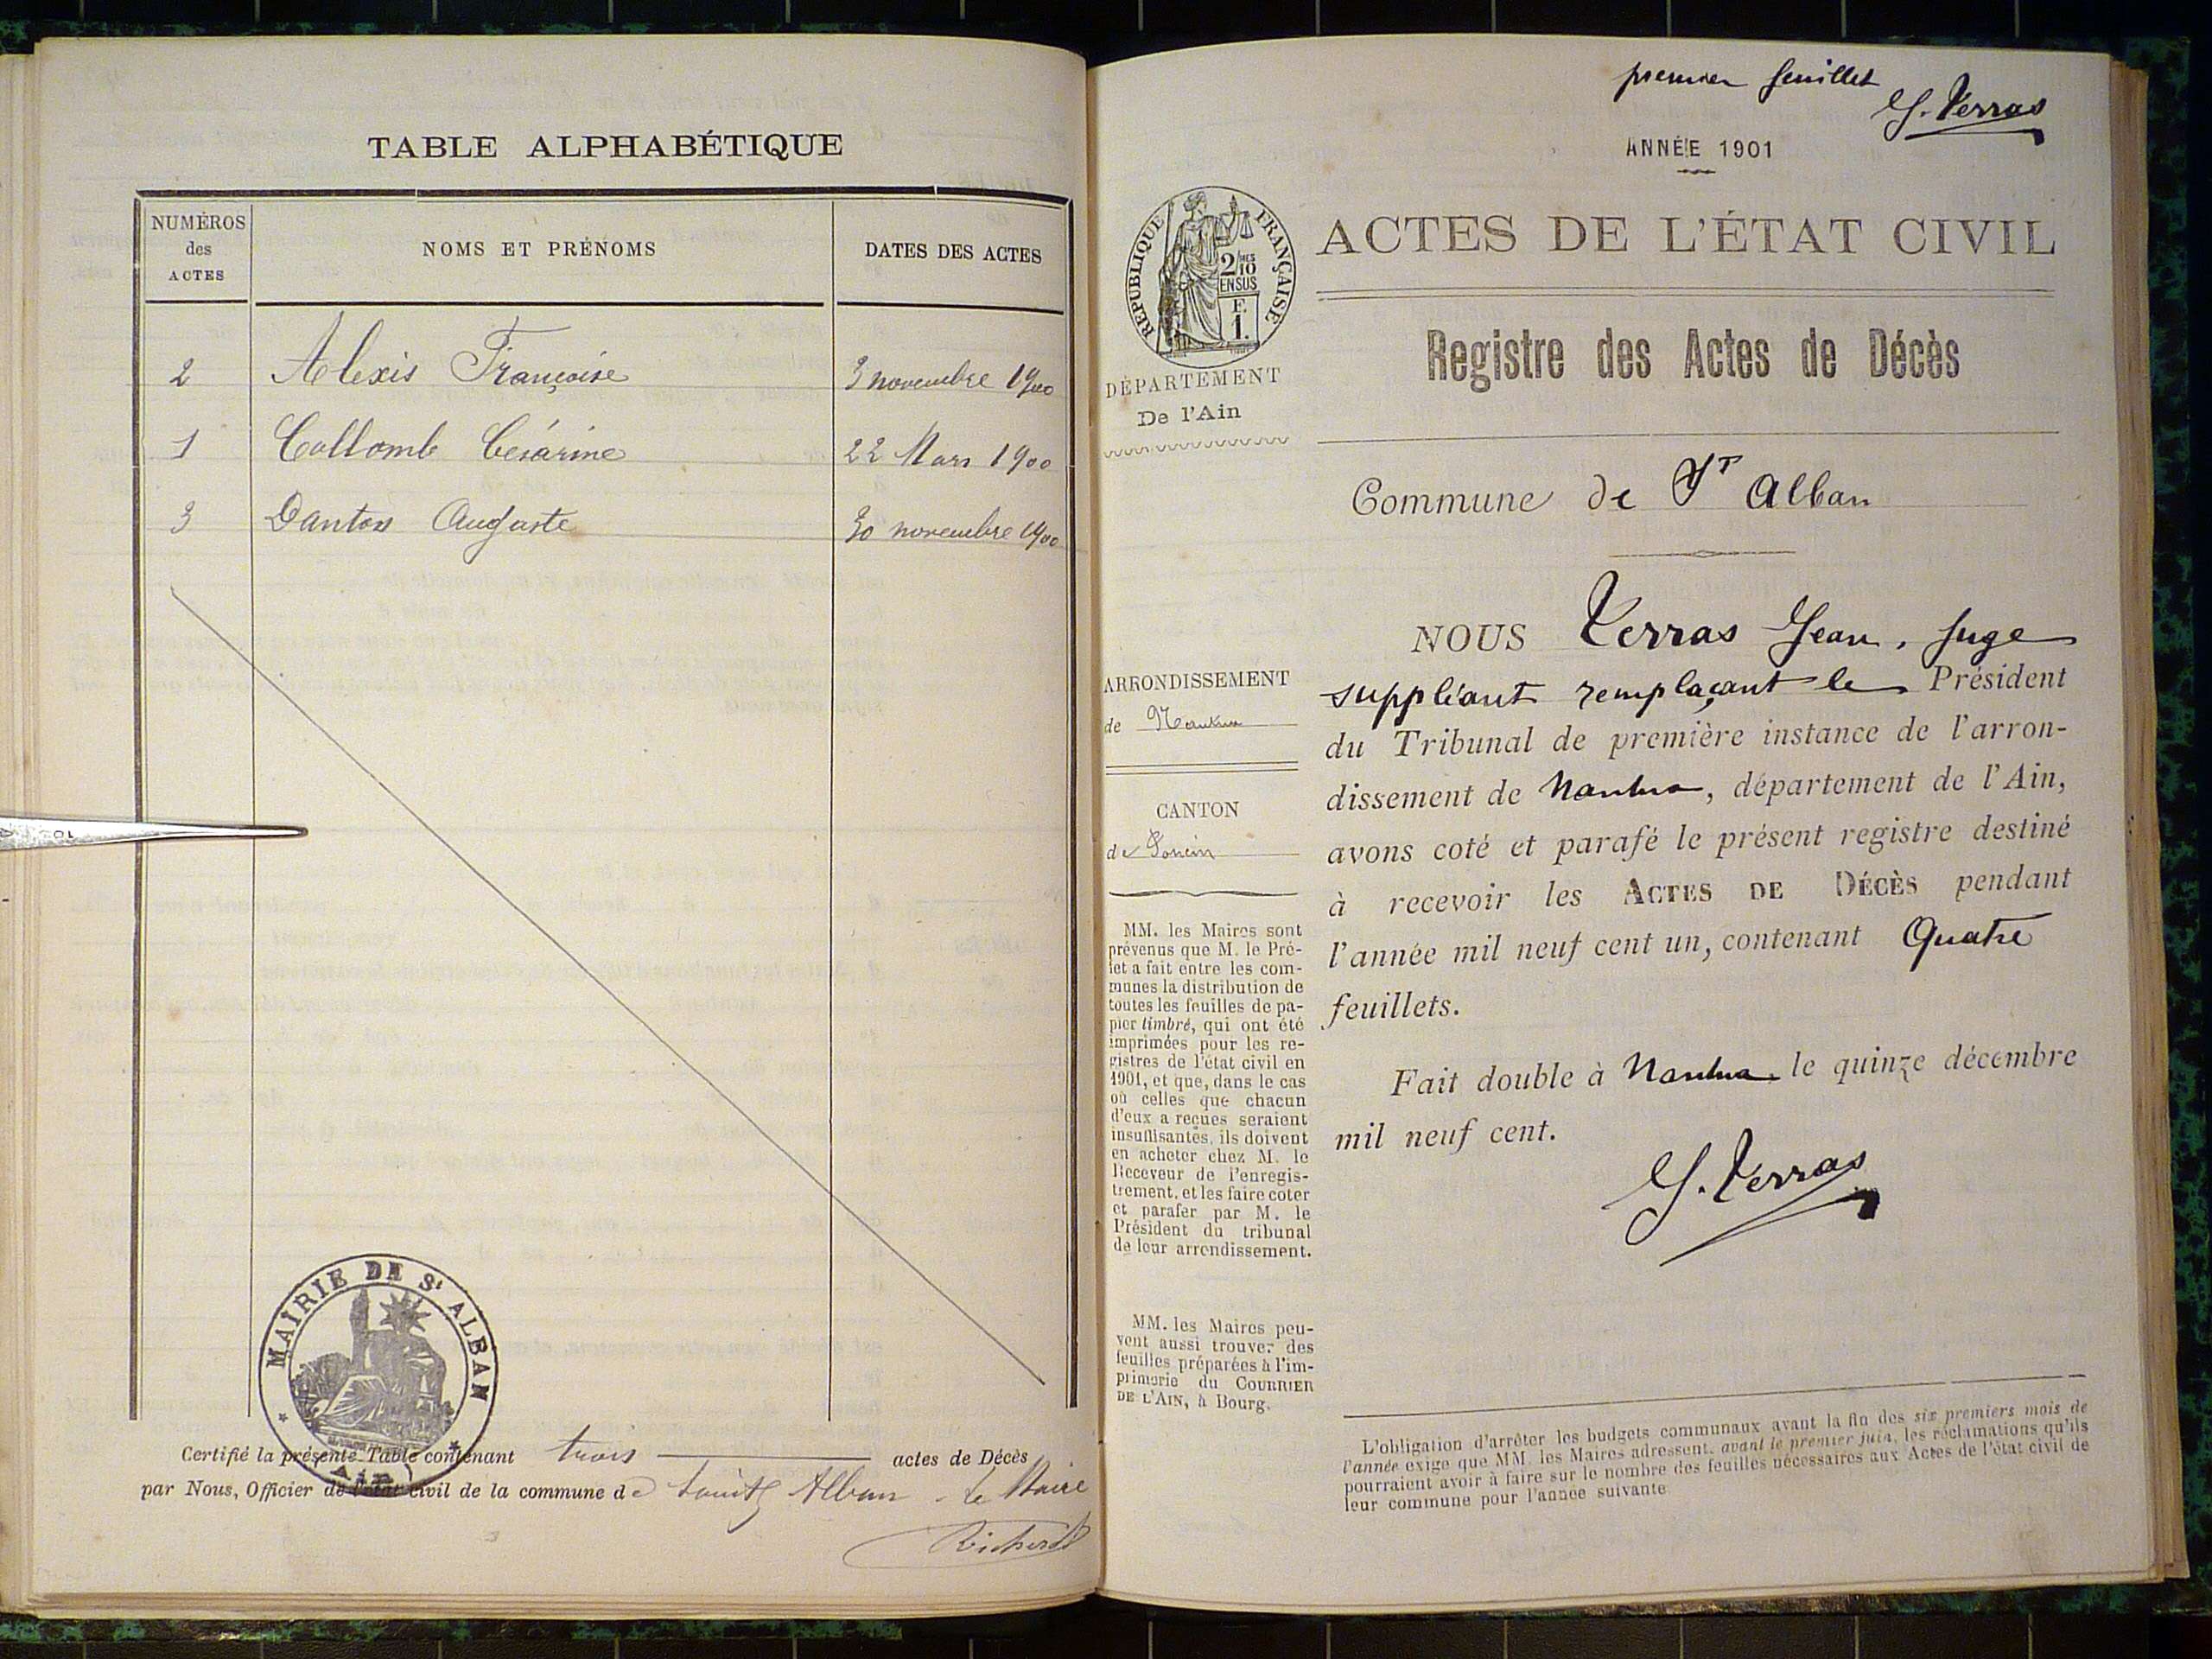 TABLE ALPHABÉTIQUE
NUMÉROS
des
ACTES
NOMS ET PRÉNOMS
DATES DES ACTES
2 Alexis Françoise 3 novembre 1900
1 Collomb Césarine 22 Mars 1900
3 Danton Auguste 30 novembre 1900
MAIRIE DE St ALBAN
Ain
Certifié la présente Table contenant trois actes de Décès
par Nous, Officier de l'état civil de la commune de Saint Alban - Le Maire
premier feuillet
J. Verras
ANNÉE 1901
RÉPUBLIQUE FRANÇAISE
2/10
EN SUS
F.
1.
ACTES DE L'ÉTAT CIVIL
Registre des Actes de Décès
DÉPARTEMENT
De l'Ain
Commune de St Alban
NOUS Verras Jean, Juge
suppléant remplaçant le Président
du Tribunal de première instance de l'arron-
dissement de Nantua, département de l'Ain,
avons coté et parafé le présent registre destiné
à recevoir les ACTES DE DÉCÈS pendant
l'année mil neuf cent un, contenant Quatre
feuillets.
Fait double à Nantua, le quinze décembre
mil neuf cent.
J. Verras
ARRONDISSEMENT
de Nantua
CANTON
de Poncin
MM. les Maires sont
prévenus que M. le Pré-
fet a fait entre les com-
munes la distribution de
toutes les feuilles de pa-
pier timbré, qui ont été
imprimées pour les re-
gistres de l'état civil en
1901, et que, dans le cas
où celles que chacun
d'eux a reçues seraient
insuffisantes, ils doivent
en acheter chez M. le
Receveur de l'enregis-
trement, et les faire coter
et parafer par M. le
Président du tribunal
de leur arrondissement.
MM. les Maires peu-
vent aussi trouver des
feuilles préparées à l'im-
primerie du COURRIER
DE L'AIN, à Bourg.
L'obligation d'arrêter les budgets communaux avant la fin des six premiers mois de
l'année exige que MM. les Maires adressent, avant le premier juin, les réclamations qu'ils
pourraient avoir à faire sur le nombre des feuilles nécessaires aux Actes de l'état civil de
leur commune pour l'année suivante